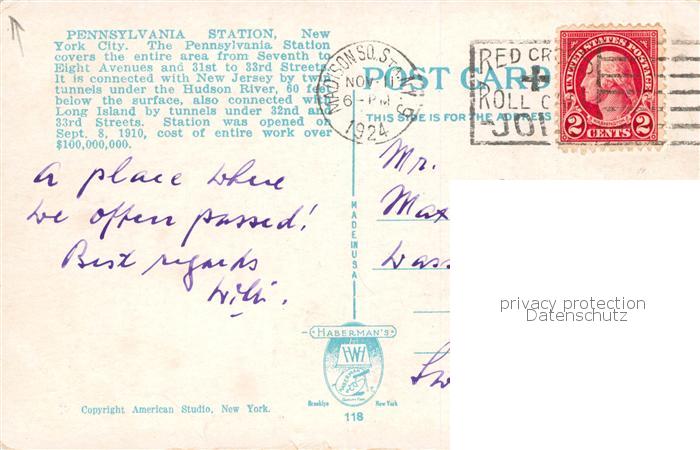 PENNSYLVANIA STATION, New
York City. The Pennsylvania Station
covers the entire area from Seventh to
Eight Avenues and 31st to 33rd Streets.
It is connected with New Jersey by two
tunnels under the Hudson River, 60 fe
below the surface, also connected wi
Long Island by tunnels under 32nd and
33rd Streets. Station was opened on
Sept. 8, 1910, cost of entire work over
$100,000,000.
MADISON SQ. STA. N.Y.
NOV
6-PM
1924
POST CARD
THIS SIDE IS FOR THE ADDRESS
RED CR
ROLL C
-JOI
UNITED STATES POSTAGE
2 CENTS 2
a place where
we often passed!
Best regards
Willi.
Mr.
Max
Wass
Sw
MADE IN USA
HABERMAN'S
Brooklyn New York
118
Copyright American Studio, New York.
privacy protection
Datenschutz